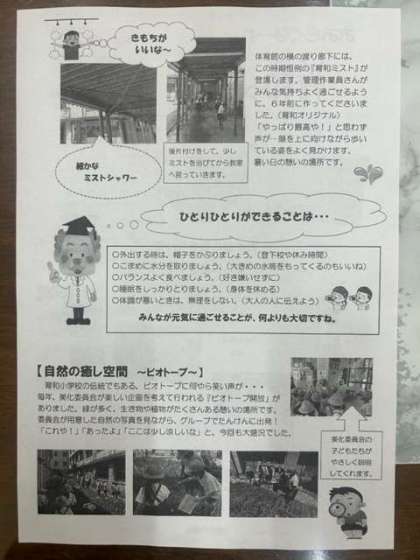 きもちが
いいな～
体育館の横の渡り廊下には、
この時期恒例の『育和ミスト』が
登場します。管理作業員さんが
みんな気持ちよく過ごせるよう
に、６年前に作ってくださいま
した。（育和オリジナル）
「やっぱり最高や！」と思わず
声が…顔を上に向けながら歩い
ている姿をよく見かけます。
暑い日の憩いの場所です。
細かな
ミストシャワー
後片付けをして、少し
ミストを浴びてから教室
へ戻っていきます。
ひとりひとりができることは・・・
○外出する時は、帽子をかぶりましょう。（登下校や休み時間）
○こまめに水分を取りましょう。（大きめの水筒をもってくるのもいいね）
○バランスよく食べましょう。（好き嫌いせずに）
○睡眠をしっかりとりましょう。（身体を休める）
○体調が悪いときは、無理をしない。（大人の人に伝えよう）
みんなが元気に過ごせることが、何よりも大切ですね。
【自然の癒し空間　～ビオトープ～】
育和小学校の伝統でもある、ビオトープに何やら笑い声が・・・
毎年、美化委員会が楽しい企画を考えて行われる『ビオトープ開放』が
ありました。緑が多く、生き物や植物がたくさんある憩いの場所です。
委員会が用意した自然の写真を見ながら、グループでたんけんに出発！
「これや！」「あったよ」「ここは少し涼しいな」と、今回も大盛況でした。
美化委員会の
子どもたちが
やさしく説明
してくれます。